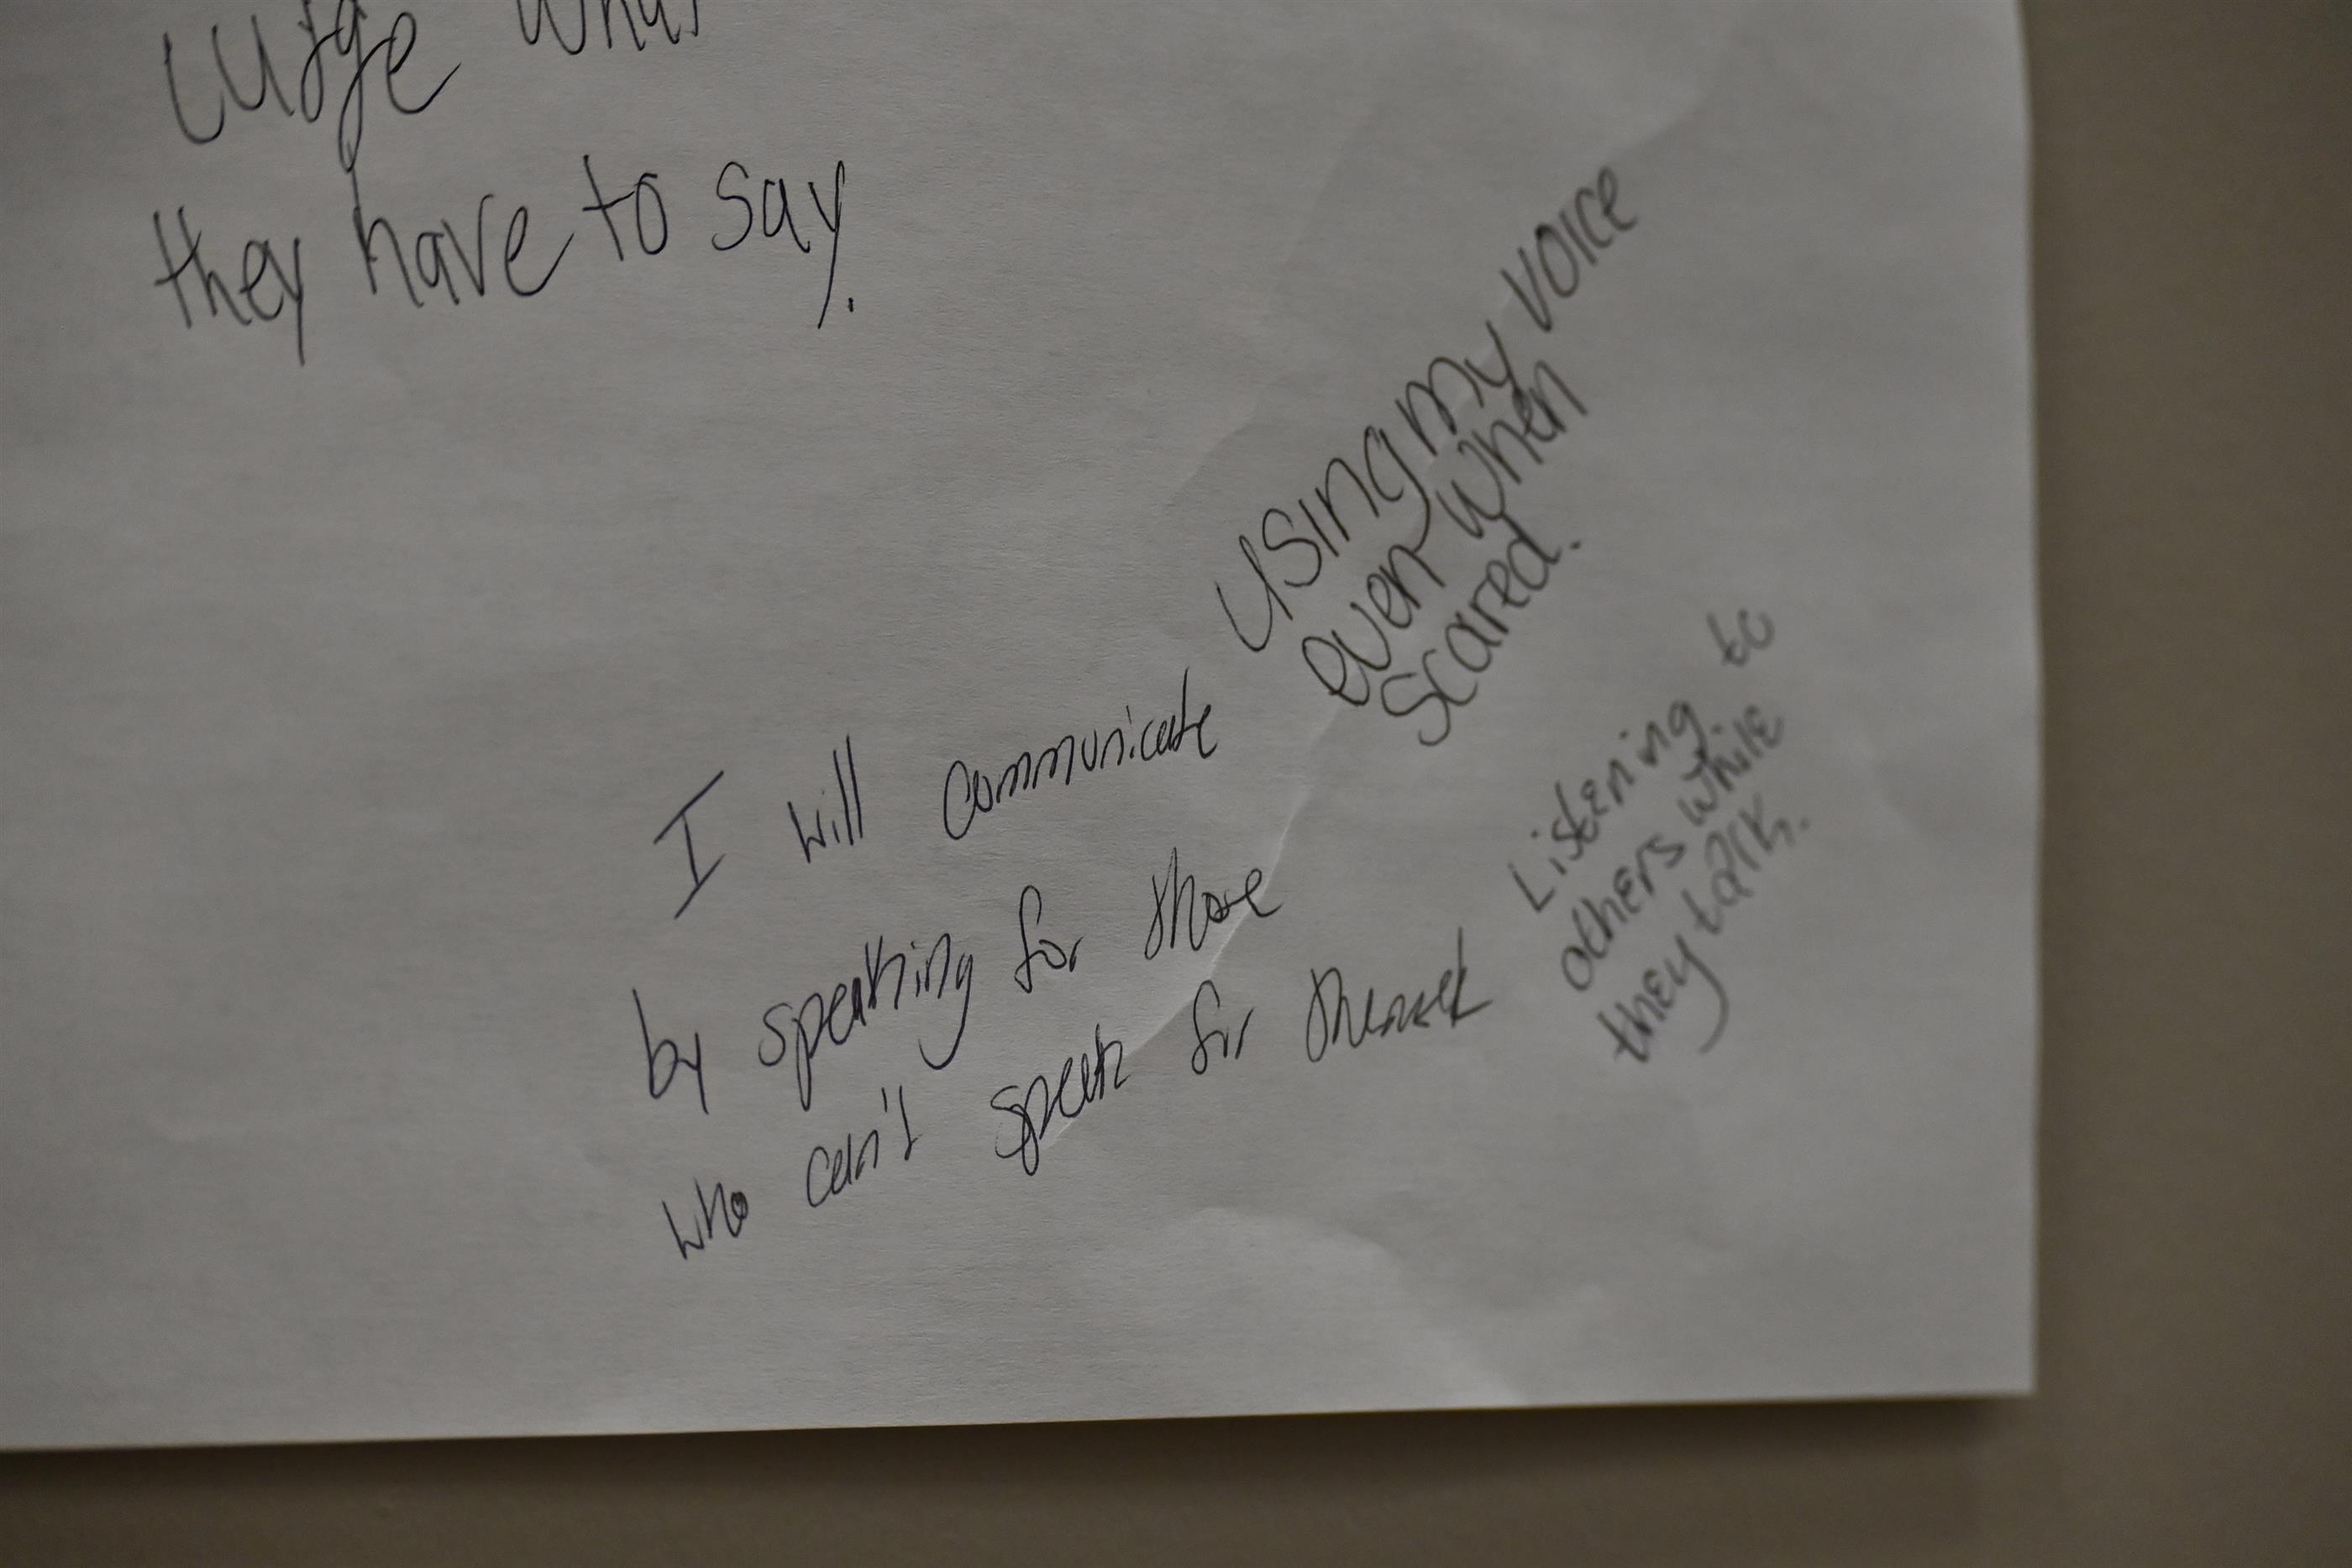 what
they have to say.
using my voice
even when
scared.
I will communicate
by speaking for those
who can't speak for
Listening to
others while
they talk.